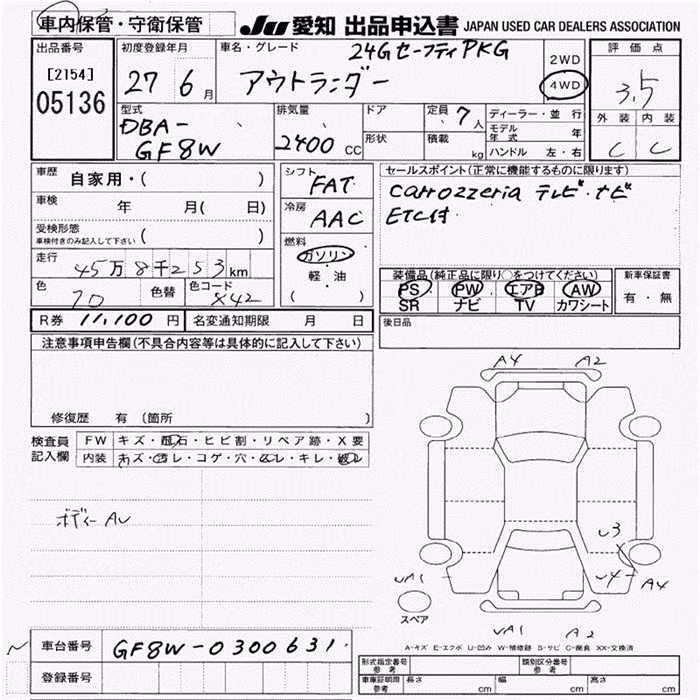 車内保管・守衛保管
JU 愛知 出品申込書 JAPAN USED CAR DEALERS ASSOCIATION
出品番号
[2154]
05136
初度登録年月
27 6月
車名・グレード
24Gセーフティ PKG
アウトランダー
2WD
4WD
評価点
3.5
外装 内装
C C
型式
DBA-
GF8W
排気量
2400 CC
ドア
形状
定員 7人
積載 kg
ディーラー・並行
モデル年式 年
ハンドル 左・右
車歴 自家用・( )
車検 年 月( 日)
受検形態
車検付きのみ記入して下さい ( )
走行 45万8千253km
色 70 色替 色コード X42
シフト FAT
冷房 AAC
燃料
ガソリン
軽・油
( )
セールスポイント(正常に機能するものに限ります)
carrozzeria テレビ・ナビ
ETC付
装備品(純正品に限り○をつけてください)
PS PW エアB AW
SR ナビ TV カワシート
新車保証書
有・無
R券 11,100円 名変通知期限 月 日
後日品
注意事項申告欄(不具合内容等は具体的に記入して下さい)
修復歴 有 (箇所 )
検査員
記入欄
FW キズ・飛石・ヒビ割・リペア跡・X要
内装 キズ・汚レ・コゲ・穴・ムレ・キレ・破レ
ボディー AU
A4 A2
U3
U4 A4
UA1
スペア
UA1 A2
A-キズ E-エクボ U-凹み W-補修跡 S-サビ C-腐食 XX-交換済
車台番号 GF8W-0300631
登録番号
形式指定番号
参考
類別区分番号
参考
車庫証明用
参考
長さ cm 幅 cm 高さ cm